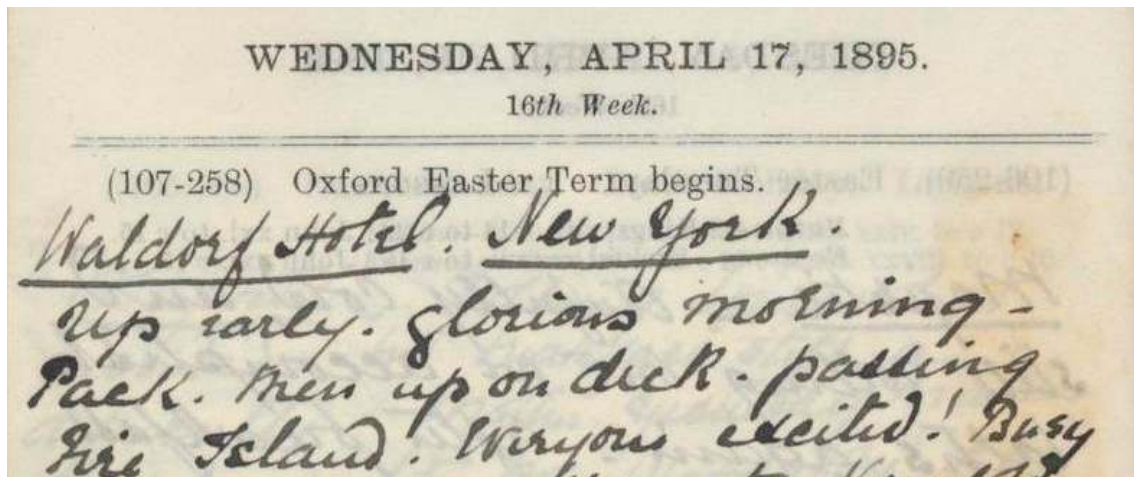 WEDNESDAY, APRIL 17, 1895.
16th Week.
(107-258) Oxford Easter Term begins.
Waldorf Hotel. New York.
Up early. Glorious morning -
Pack. Then up on deck. passing
Fire Island. Everyone excited! Busy